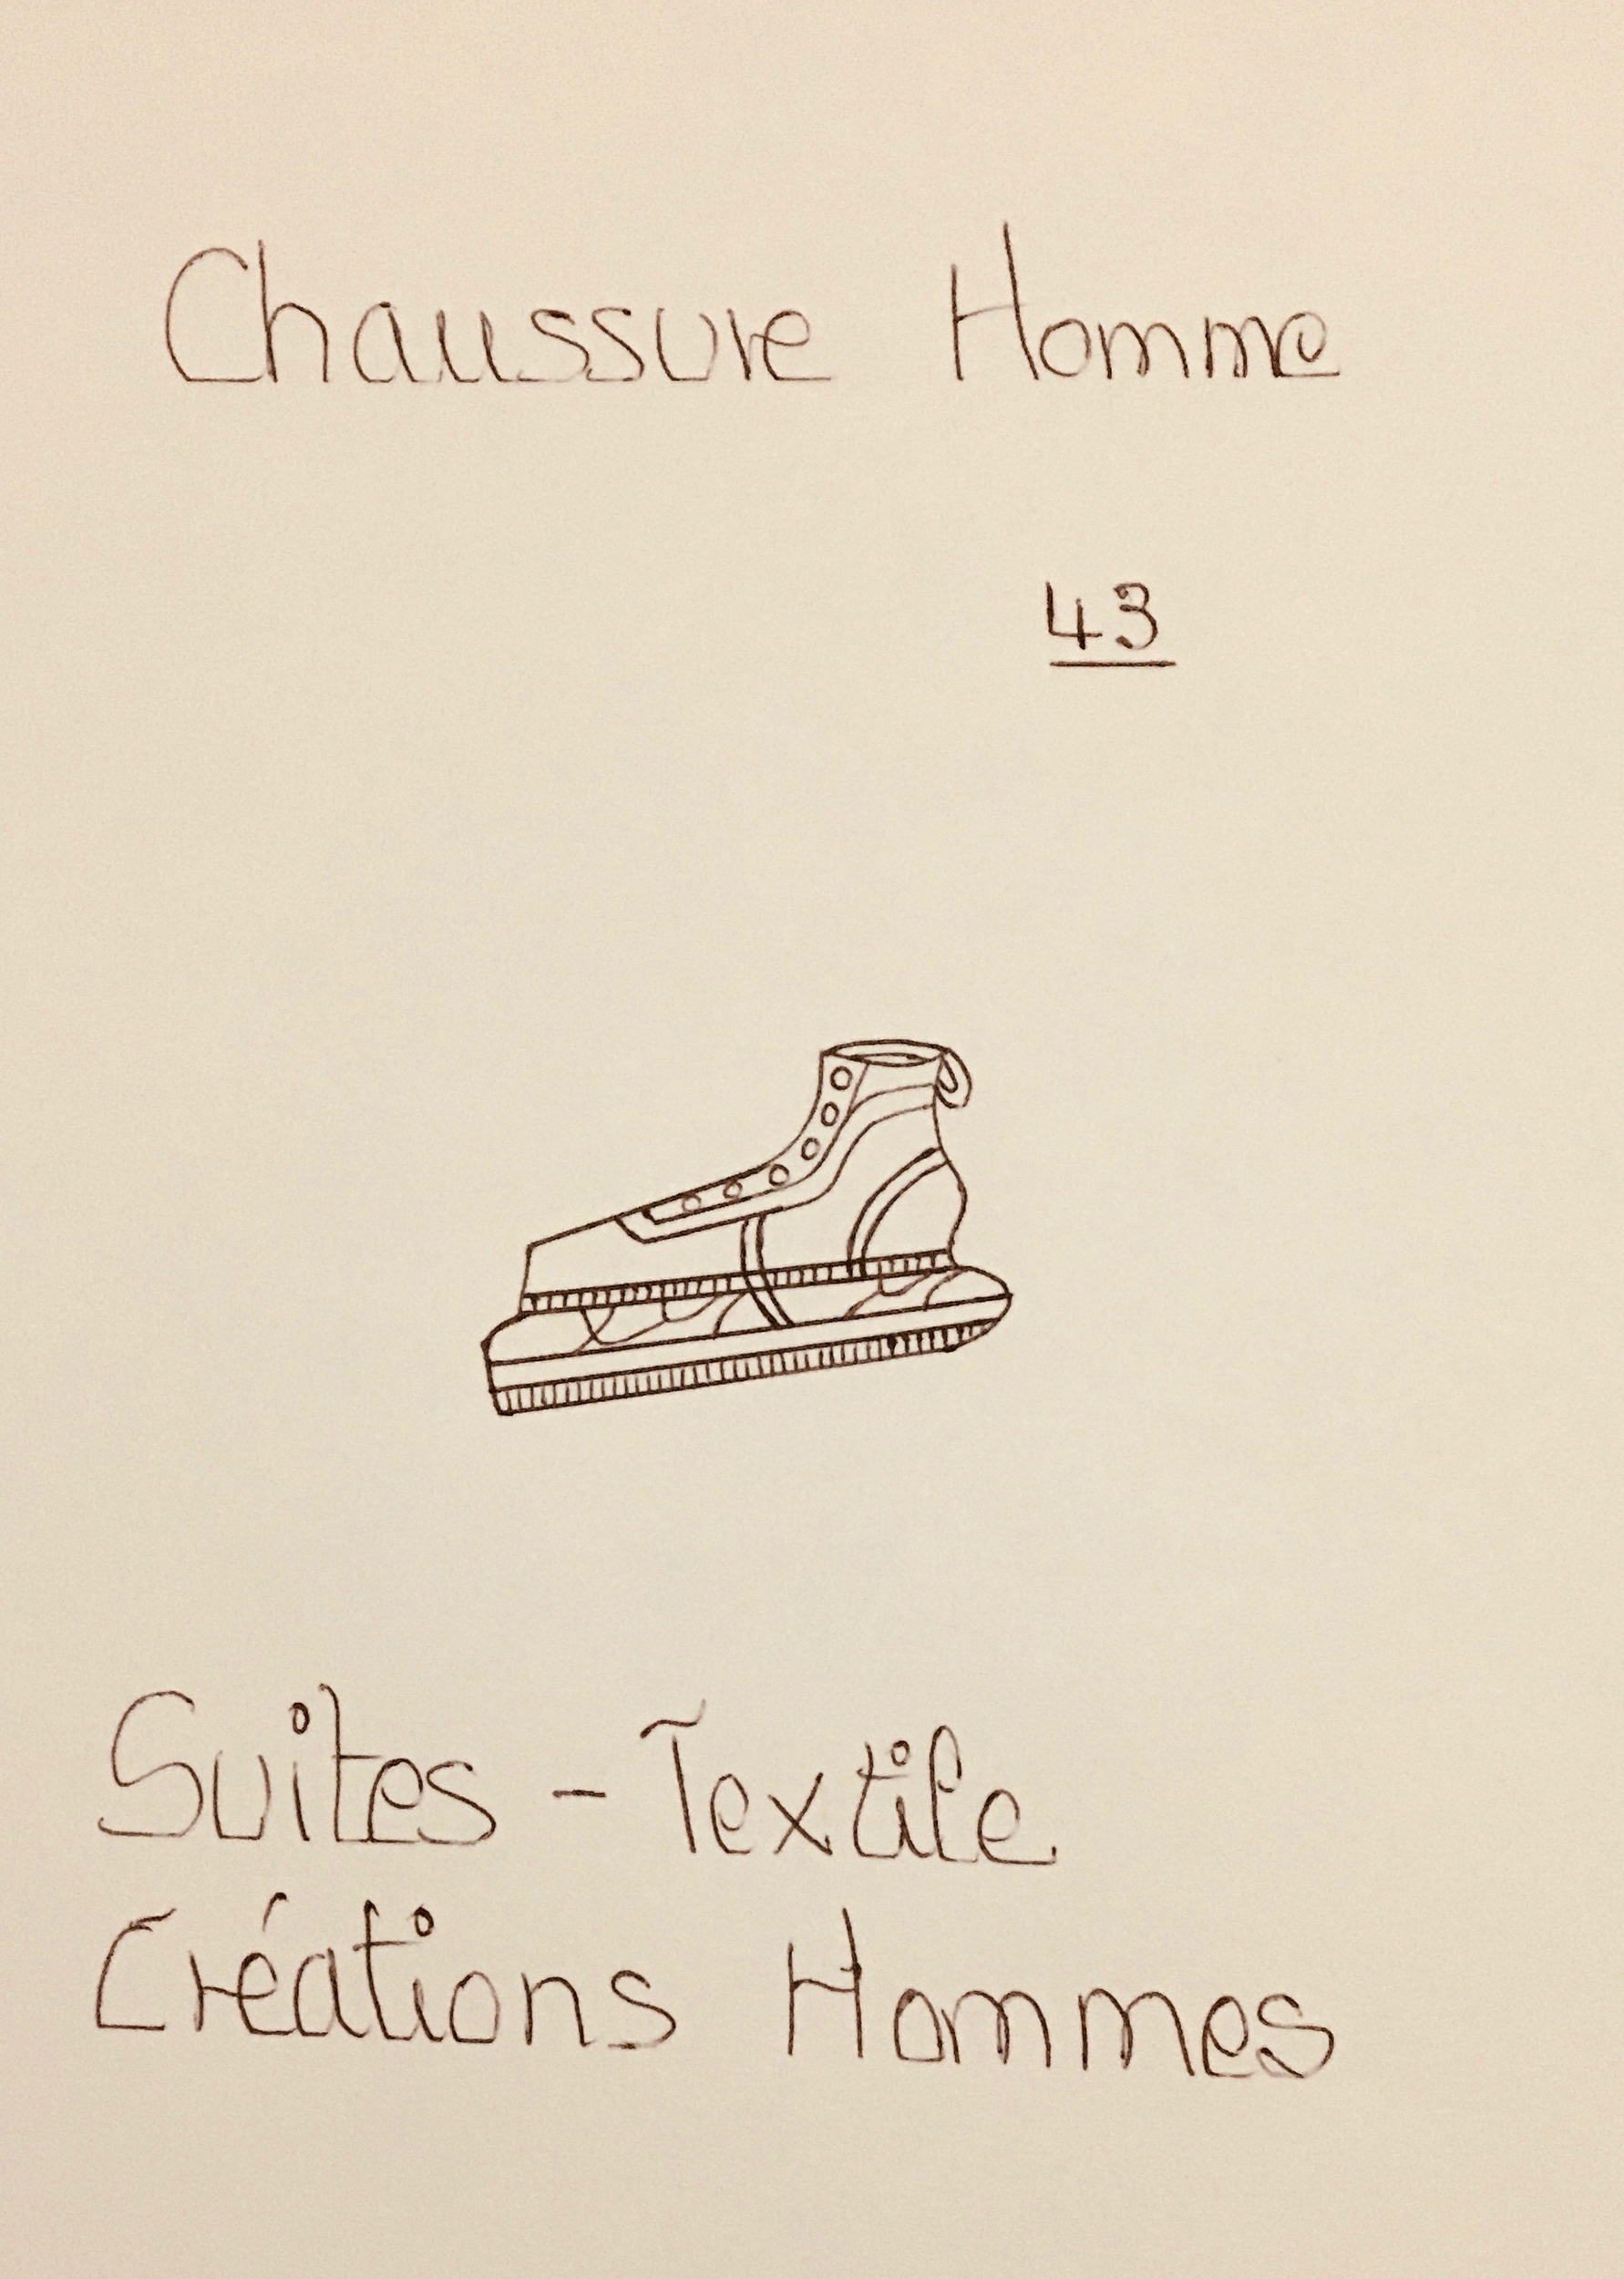 Chaussure Homme
43
Suites - Textile
Créations Hommes